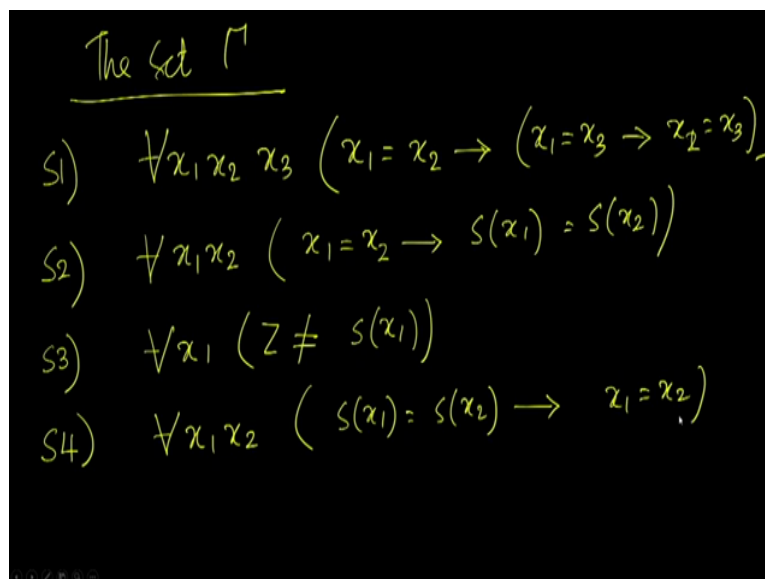 The Set Γ
S1) ∀x₁x₂ x₃ (x₁ = x₂ → (x₁ = x₃ → x₂ = x₃)
S2) ∀x₁x₂ (x₁ = x₂ → S(x₁) = S(x₂))
S3) ∀x₁ (Z ≠ S(x₁))
S4) ∀x₁x₂ (S(x₁) = S(x₂) → x₁ = x₂)